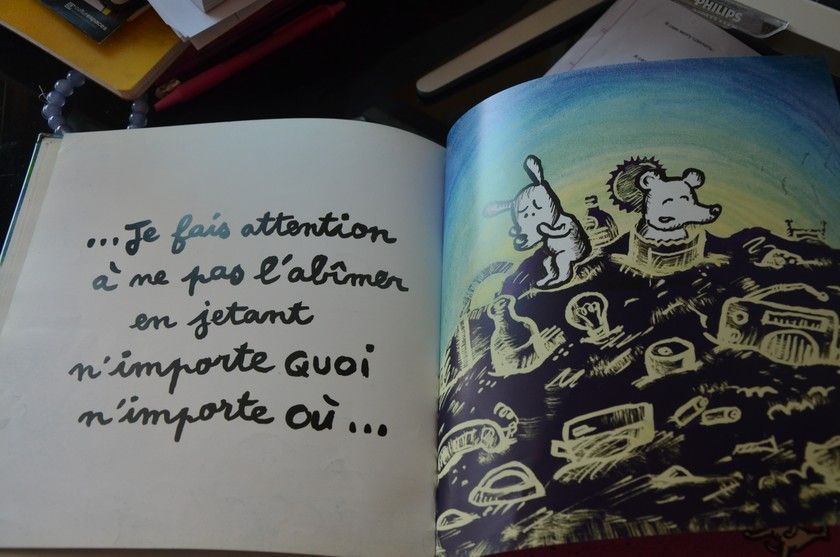 ...Je fais attention
à ne pas l'abîmer
en jetant
n'importe QUOI
n'importe OÙ...
PHILIPS